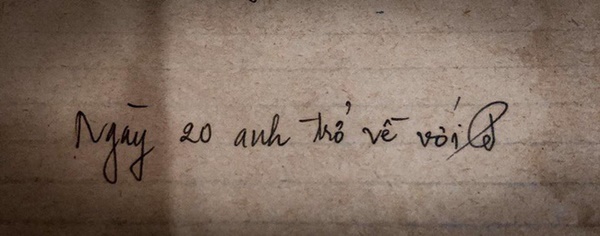 Ngày 20 anh trở về với